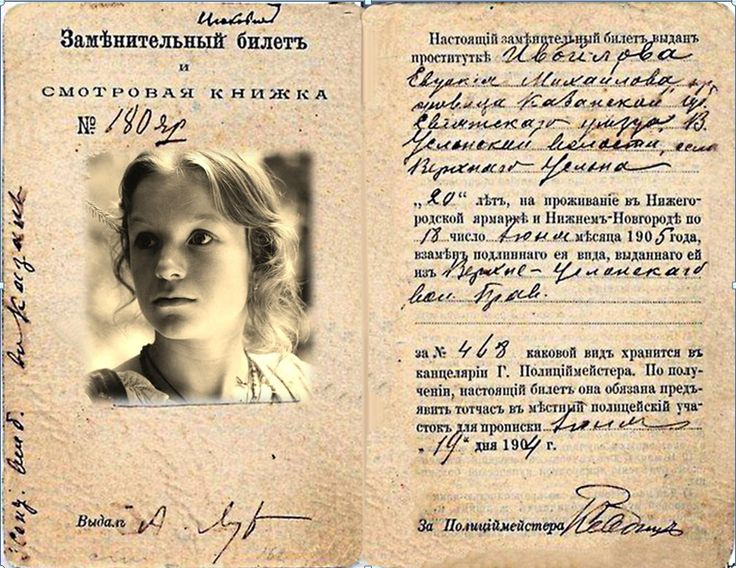 Замѣнительный билетъ
и
СМОТРОВАЯ КНИЖКА
№ 180 яр
Выдалъ
Настоящій замѣнительный билетъ выданъ
проституткѣ
Евдокія Михаилова
Казанской
уѣзда
волости, села
Верхняго Услона
„20“ лѣтъ, на проживаніе въ Нижего-
родской ярмаркѣ и Нижнемъ-Новгородѣ по
18 число Іюня мѣсяца 1905 года,
взамѣнъ подлиннаго ея вида, выданнаго ей
изъ Верхне-Услонскаго
вол. Прав.
за № 463 каковой видъ хранится въ
канцеляріи Г. Полиціймейстера. По полу-
ченіи, настоящій билетъ она обязана предъ-
явить тотчасъ въ мѣстный полицейскій уча-
стокъ для прописки Іюня
„19“ дня 1904 г.
За Полиціймейстера